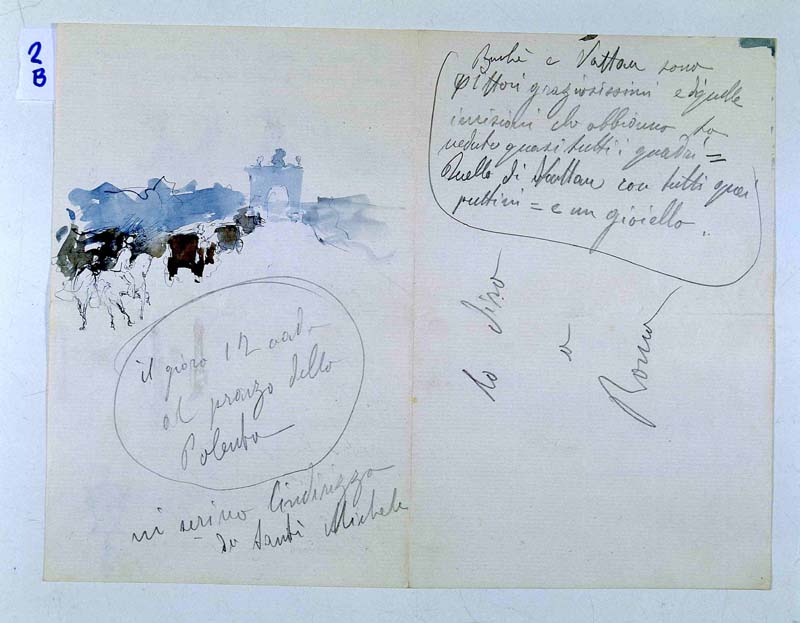 2
B
il giorno 12 vado
al pranzo dello
Polenta
mi scrivo l'indirizzo
di Santi Michele
e Vattau sono
Pittori graziosissimi e di quelle
incisioni che abbiamo
veduto quasi tutti i quadri =
Quello di Vattau con tutti quei
puttini = e un gioiello.
lo dirò
a
Roma